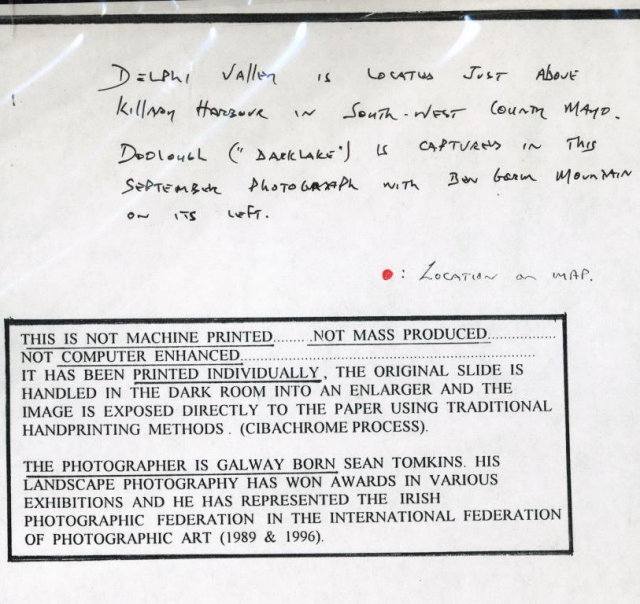 DELPHI VALLEY IS LOCATED JUST ABOVE
KILLARY HARBOUR IN SOUTH-WEST COUNTY MAYO.
DOOLOUGH ("DARKLAKE") IS CAPTURED IN THIS
SEPTEMBER PHOTOGRAPH WITH BEN GORM MOUNTAIN
ON ITS LEFT.
: LOCATION ON MAP.
THIS IS NOT MACHINE PRINTED........ .NOT MASS PRODUCED.................
NOT COMPUTER ENHANCED..........................................................................
IT HAS BEEN PRINTED INDIVIDUALLY, THE ORIGINAL SLIDE IS
HANDLED IN THE DARK ROOM INTO AN ENLARGER AND THE
IMAGE IS EXPOSED DIRECTLY TO THE PAPER USING TRADITIONAL
HANDPRINTING METHODS . (CIBACHROME PROCESS).
THE PHOTOGRAPHER IS GALWAY BORN SEAN TOMKINS. HIS
LANDSCAPE PHOTOGRAPHY HAS WON AWARDS IN VARIOUS
EXHIBITIONS AND HE HAS REPRESENTED THE IRISH
PHOTOGRAPHIC FEDERATION IN THE INTERNATIONAL FEDERATION
OF PHOTOGRAPHIC ART (1989 & 1996).